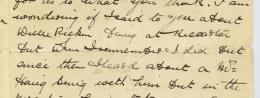 for us to what you think. I am
wondering if I said to you about
Willie Rickin being at Riccarton
but then I remember I did but
since then I heard about a Mr
Haig being with him but in the